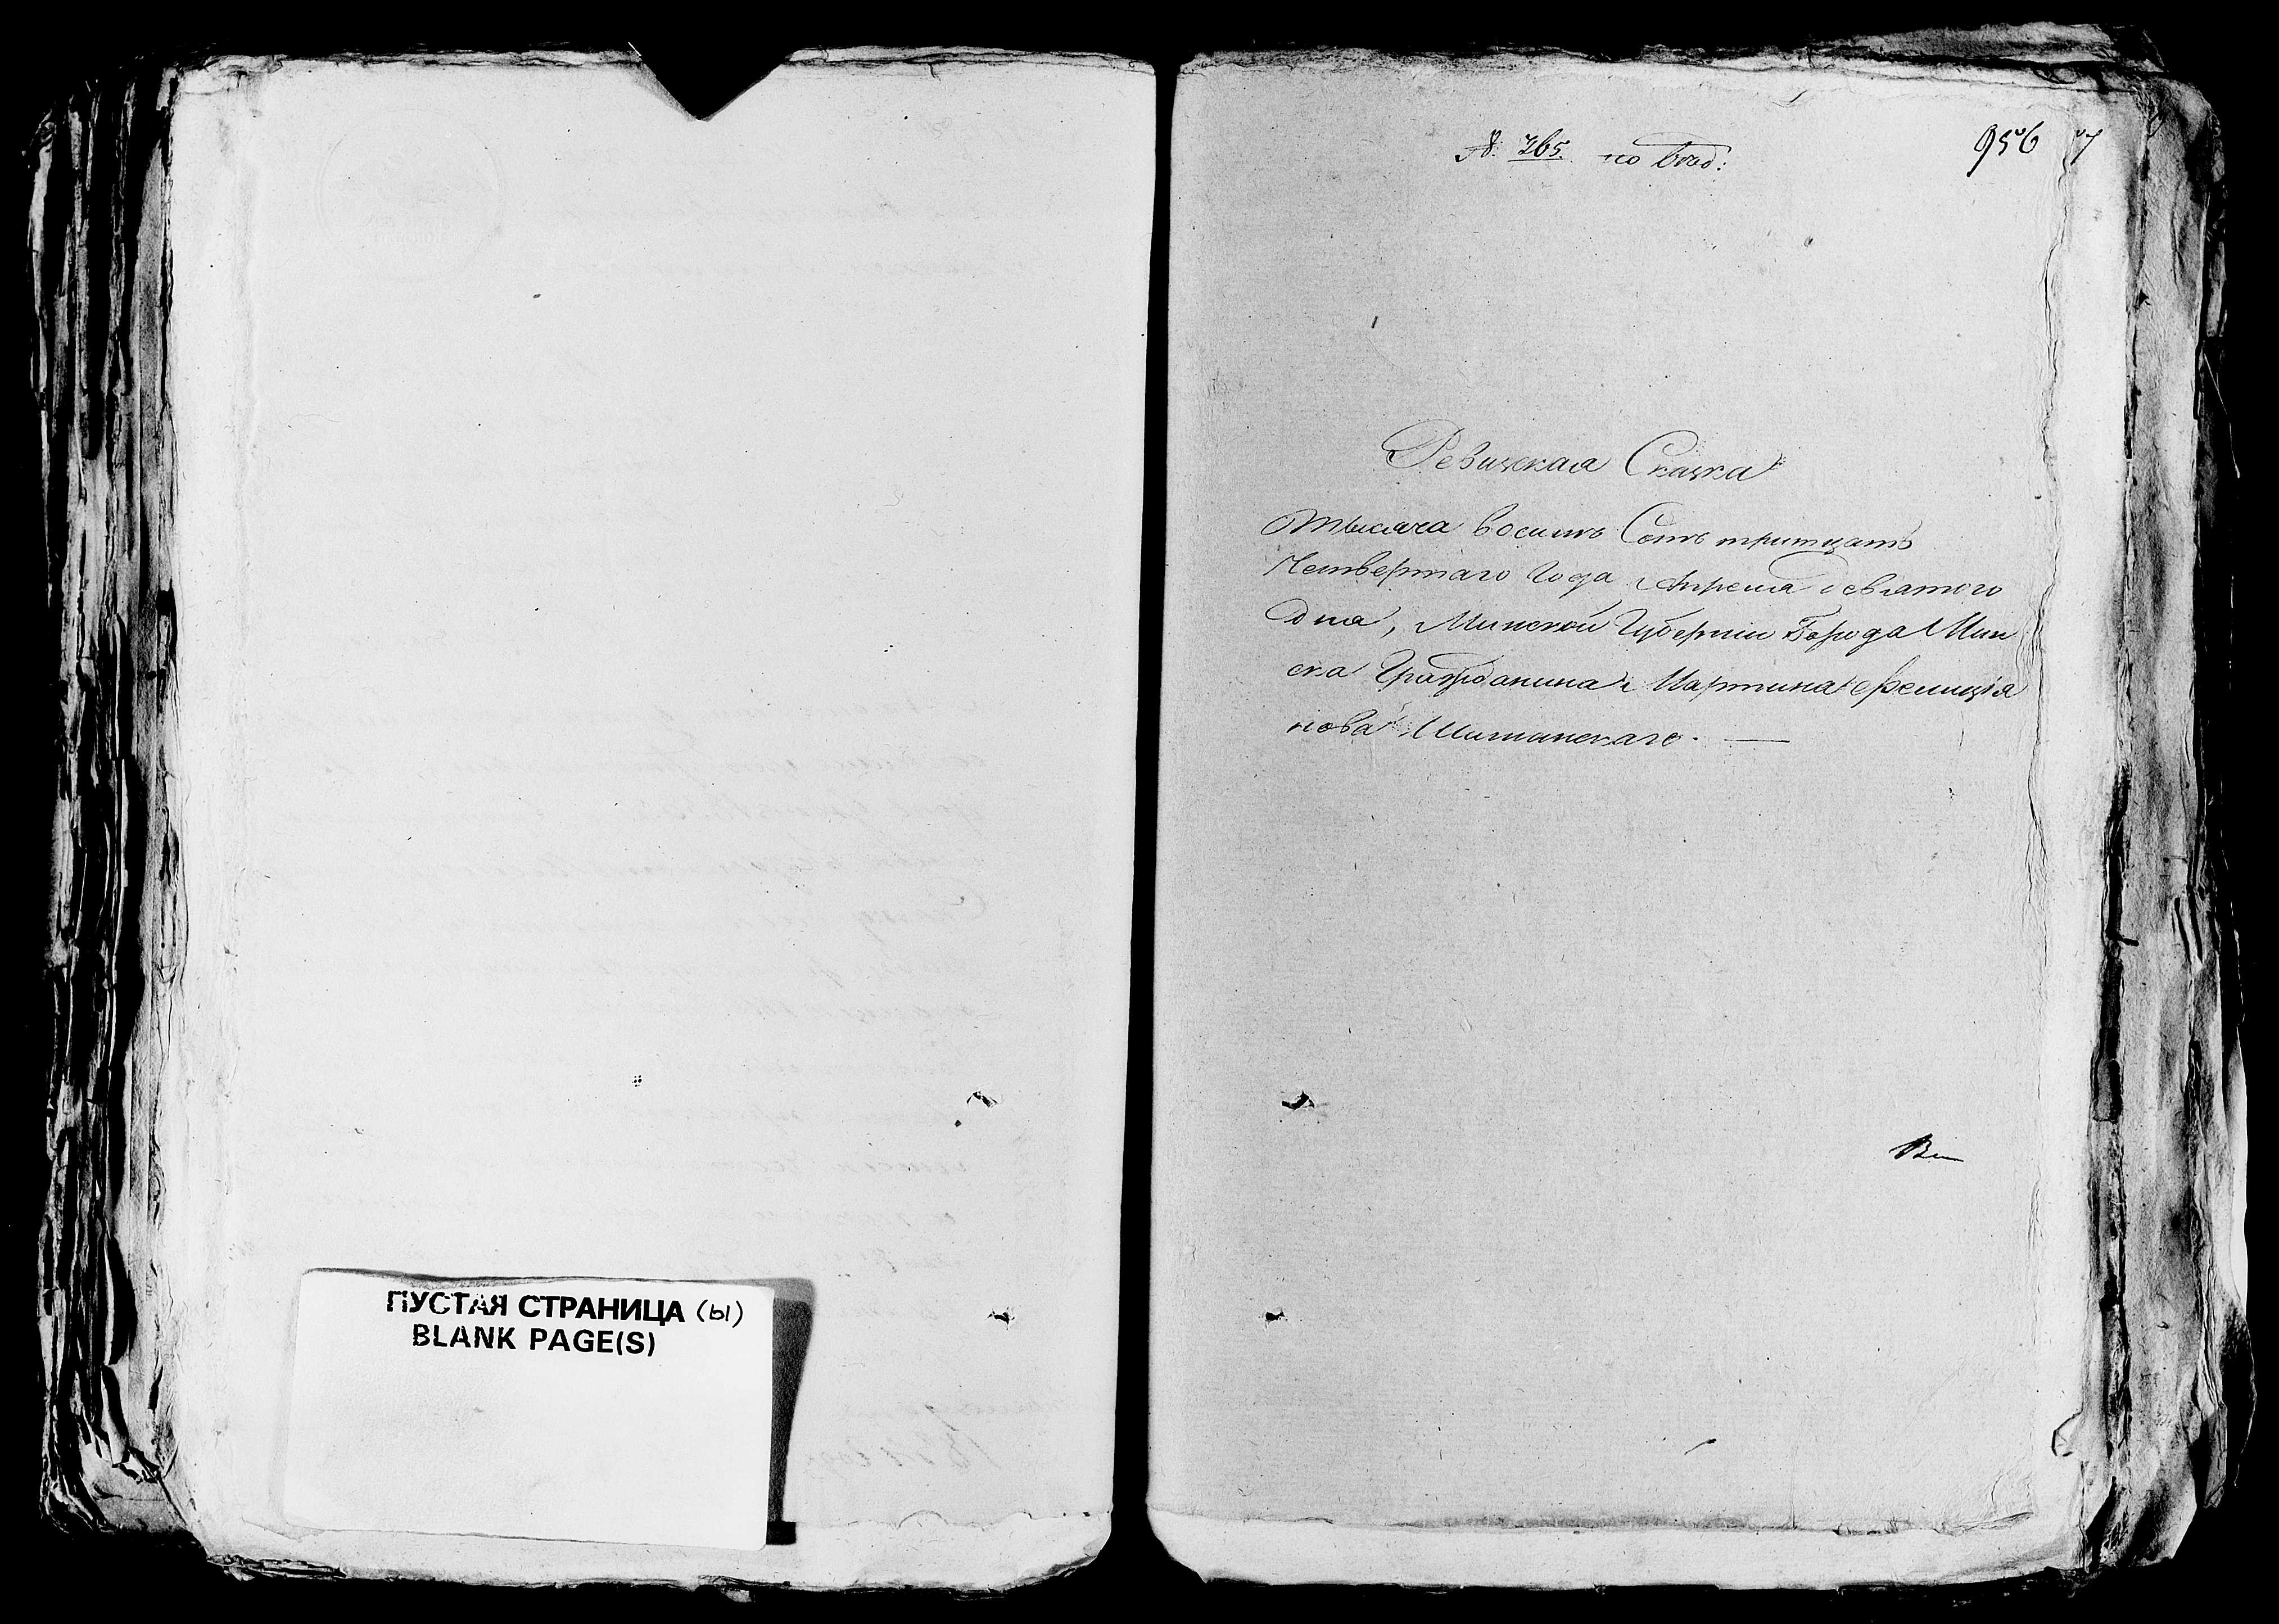 ПУСТАЯ СТРАНИЦА (ы)
BLANK PAGE(S)
№. 365. по
956
Ревизская Сказка
Тысяча восемь Сотъ тритцать
Четвертаго Года Апреля девятого
дня, Минской Губернии Города Мин
ска Гражданина Мартина Фелиція
нова Шиманскаго. —